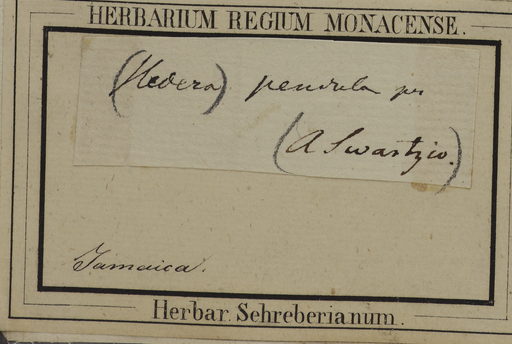 HERBARIUM REGIUM MONACENSE.
(Hedera) pendula
(A Swartzio.)
Jamaica.
Herbar. Schreberianum.